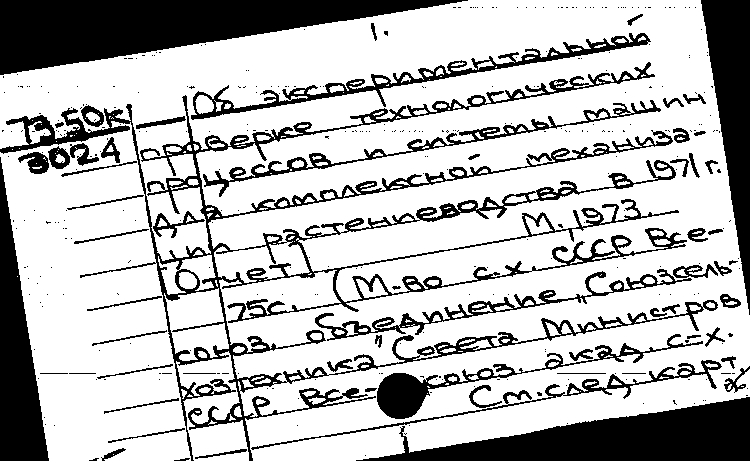 1.
73-50к
3024
Об экспериментальной
проверке технологических
процессов и системы машин
для комплексной механиза-
ции растениеводства в 1971 г.
[Отчет] М., 1973.
75с. (М-во с.х. СССР. Все-
союз. объединение „Союзсель-
хозтехника" Совета Министров
СССР. Все- союз. акад. с-х.
См. след. карт.